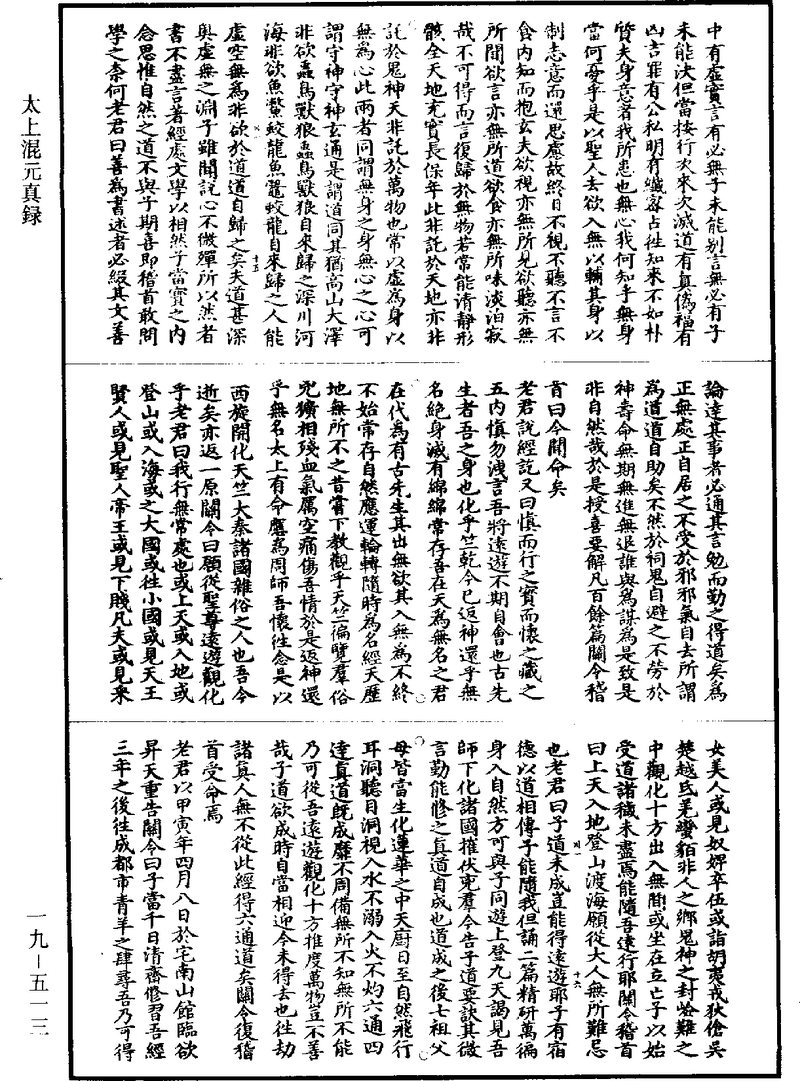 太上混元真録
中有虛實言有必無子未能別言無必有子
未能決但當按行次來次滅道有真僞福有
凶吉罪有公私明有纎客占往知來不如朴
質夫身意者我所患也無心我何知乎無身
當何憂乎是以聖人去欲入無以輔其身以
制志意而還思慮故終日不視不聽不言不
食内知而抱玄夫欲視亦無所見欲聽亦無
所聞欲言亦無所道欲食亦無所味淡泊寂
哉不可得而言復歸於無物若常能清靜形
骸全天地充實長保年此非託於天地亦非
託於鬼神天非託於萬物也常以虛爲身以
無爲心此兩者同謂無身之身無心之心可
謂守神守神玄通是謂道同其猶高山大澤
非欲蟲鳥獸狼蟲鳥獸狼自來歸之深川河
海非欲魚鱉蛟龍魚鱉蛟龍自來歸之人能
虛空無爲非欲於道道自歸之矣夫道甚深
十五
奥虛無之淵子雖聞說心不微殫所以然者
書不盡言著經處文學以相然子當寶之内
念思惟自然之道不與子期喜即稽首敢問
學之奈何老君曰善爲書述者必綴其文善
論達其事者必通其言勉而勤之得道矣爲
正無處正自居之不受於邪邪氣自去所謂
爲道道自助矣不然於祠鬼自避之不勞於
神壽命無期無進無退誰與爲謀爲是致是
非自然哉於是授喜要解凡百餘篇關令稽
首曰今聞命矣
老君說經訖又曰慎而行之寳而懷之藏之
五内慎勿洩言吾將遠遊不期自會也古先
生者吾之身也化乎竺乾今已返神還乎無
名絕身滅有綿綿常存吾在天爲無名之君
在代爲有古先生其出無欲其入無爲不終
不始常存自然應運輪轉隨時爲名經天歷
地無所不之昔嘗下教觀乎天竺徧覽羣俗
兇獷相殘血氣厲空痛傷吾情於是返神還
乎無名太上有命應爲周師吾懷往念是以
西旋開化天竺大秦諸國雜俗之人也吾今
逝矣亦返一原關令曰願從聖尊遠遊觀化
乎老君曰我行無常處也或上天或入地或
登山或入海或之大國或往小國或見天王
賢人或見聖人帝王或見下賤凡夫或見釆
女美人或見奴婢卒伍或詣胡夷戎狄傖吳
楚越氐羌蠻貊非人之鄉鬼神之封嶮難之
中觀化十方出入無間或坐在立亡子以始
受道諸穢未盡焉能隨吾遠行耶關令稽首
曰上天入地登山渡海願從大人無所難忌
十六
也老君曰子道未成豈能得遠遊耶子有宿
德以道相傳子能隨我但誦二篇精研萬徧
身入自然方可與子同遊上登九天謁見吾
師下化諸國摧伏兇羣今告子道要訣其微
言勤能修之真道自成也道成之後七祖父
母皆當生化蓮華之中天廚日至自然飛行
耳洞聽目洞視入水不溺入火不灼六通四
達真道既成靡不周備無所不知無所不能
乃可從吾遠遊觀化十方推度萬物豈不善
哉子道欲成時自當相迎今未得去也往劫
諸真人無不從此經得六通道矣關令復稽
首受命焉
老君以甲寅年四月八日於宅南山館臨欲
昇天重告關令曰子當千日清齋修習吾經
三年之後往成都市青羊之肆尋吾乃可得
一九—五一三